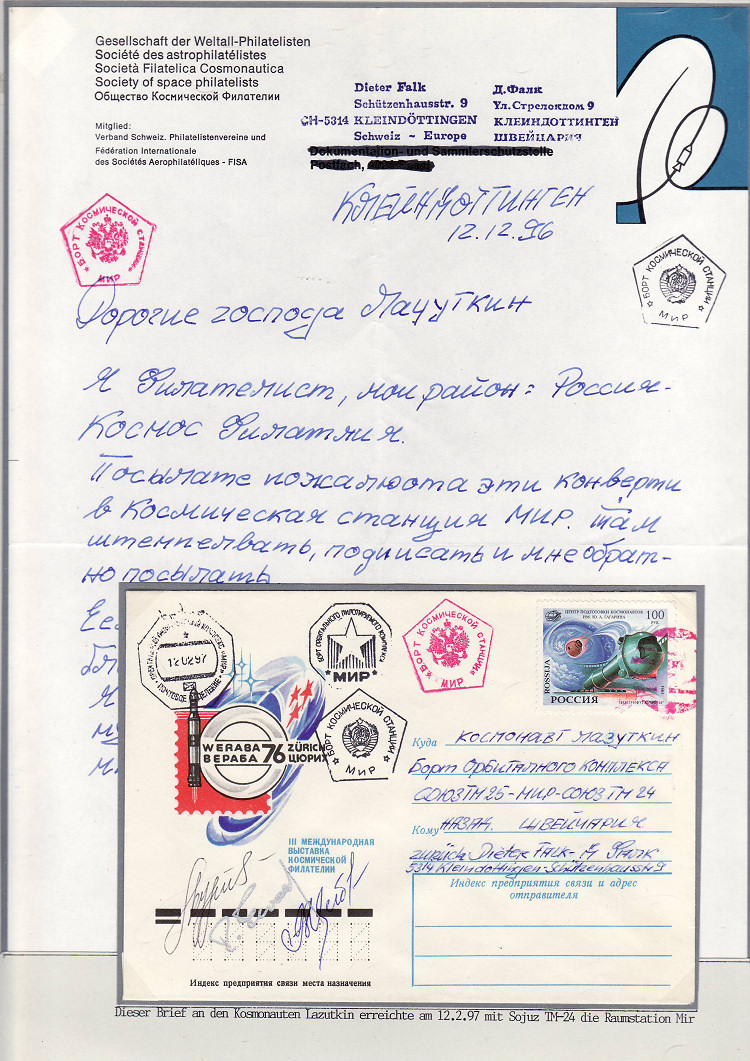 Gesellschaft der Weltall-Philatelisten
Société des astrophilatélistes
Società Filatelica Cosmonautica
Society of space philatelists
Общество Космической Филателии
Mitglied:
Verband Schweiz. Philatelistenvereine und
Fédération Internationale
des Sociétés Aérophilatéliques - FISA
Dieter Falk
Schützenhausstr. 9
CH-5314 KLEINDÖTTINGEN
Schweiz ~ Europe
Д.Фалк
Ул.Стрелокдом 9
КЛЕИНДОТТИНГЕН
ШВЕЙЦАРИЯ
Dokumentation- und Sammlerschutzstelle
Postfach,
КЛЕЙНДОТТИНГЕН
12.12.96
БОРТ КОСМИЧЕСКОЙ СТАНЦИИ
МИР
БОРТ КОСМИЧЕСКОЙ СТАНЦИИ
МИР
Дорогие господа Лацуткин
Я Филателист, мои район: Россия-
Космос Филатлия.
Посылате пожалюота эти конверти
в Космическая станция МИР. Там
штемпелвать, подписать и мне обрат-
но посылать
12 02 97
ПОЧТОВОЕ ОТДЕЛЕНИЕ
БОРТ ОРБИТАЛЬНОГО ПИЛОТИРУЕМОГО КОМПЛЕКСА
МИР
БОРТ КОСМИЧЕСКОЙ СТАНЦИИ
МИР
ЦЕНТР ПОДГОТОВКИ КОСМОНАВТОВ
ИМ. Ю. А. ГАГАРИНА
100
РУБ.
ROSSIJA
РОССИЯ
WERABA
ВЕРАБА
76
ZÜRICH
ЦЮРИХ
БОРТ КОСМИЧЕСКОЙ СТАНЦИИ
МИР
III МЕЖДУНАРОДНАЯ
ВЫСТАВКА
КОСМИЧЕСКОЙ
ФИЛАТЕЛИИ
Куда КОСМОНАВТ ЛАЗУТКИН
БОРТ ОРБИТАЛНОГО КОМПЛЕКСА
СОЮЗ ТМ 25-МИР-СОЮЗ ТМ 24
Кому НАЗАД. ШВЕЙЦАРИЯ
Zürich Dieter FALK-Д ФАЛК
5314 Kleindöttingen-Schützenhausstr 9
Индекс предприятия связи и адрес
отправителя
Индекс предприятия связи места назначения
Dieser Brief an den Kosmonauten Lazutkin erreichte am 12.2.97 mit Sojuz TM-24 die Raumstation Mir